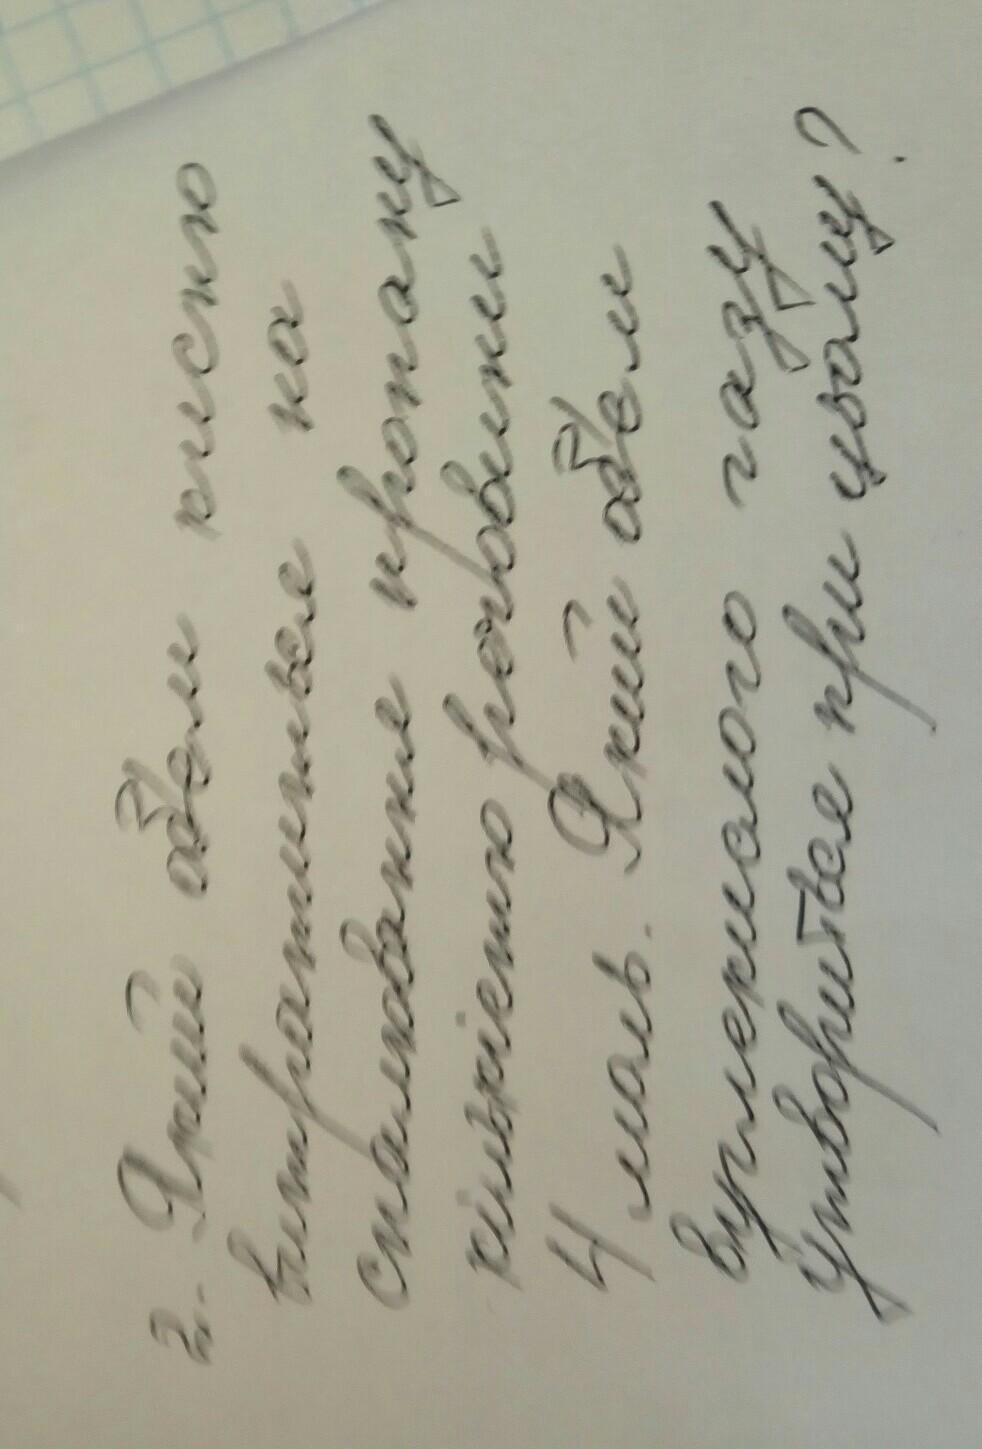 2. Який обєм кисню
витратиться на
спалювання пропану
кількістю речовини
4 моль. Який обєм
вуглекислого газу
утвориться при цьому?